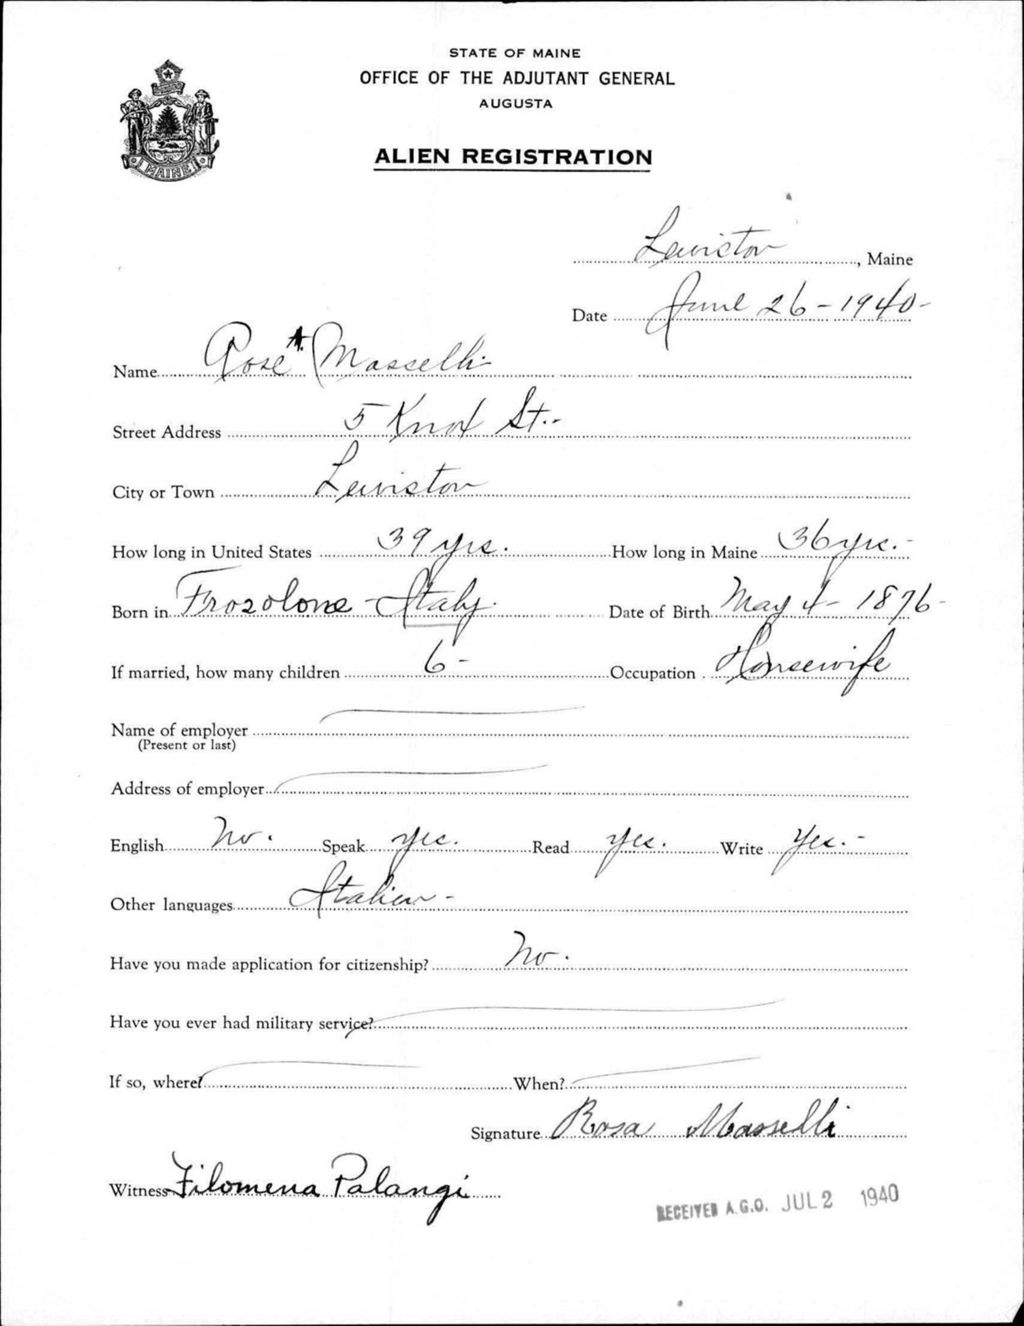 STATE OF MAINE
OFFICE OF THE ADJUTANT GENERAL
AUGUSTA
ALIEN REGISTRATION
MAINE
Lewiston, Maine
Date June 26-1940-
Name Rose A. Masselli
Street Address 5 Knox St.-
City or Town Lewiston
How long in United States 39 yrs. How long in Maine 36 yrs.-
Born in Frosolone - Italy. Date of Birth May 4 - 1876-
If married, how many children 6 - Occupation Housewife
Name of employer
(Present or last)
Address of employer
English No. Speak yes. Read yes. Write yes.-
Other languages Italian -
Have you made application for citizenship? No.
Have you ever had military service?
If so, where? When?
Signature Rosa Masselli
Witness Filomena Palangi
RECEIVED A.G.O. JUL 2 1940